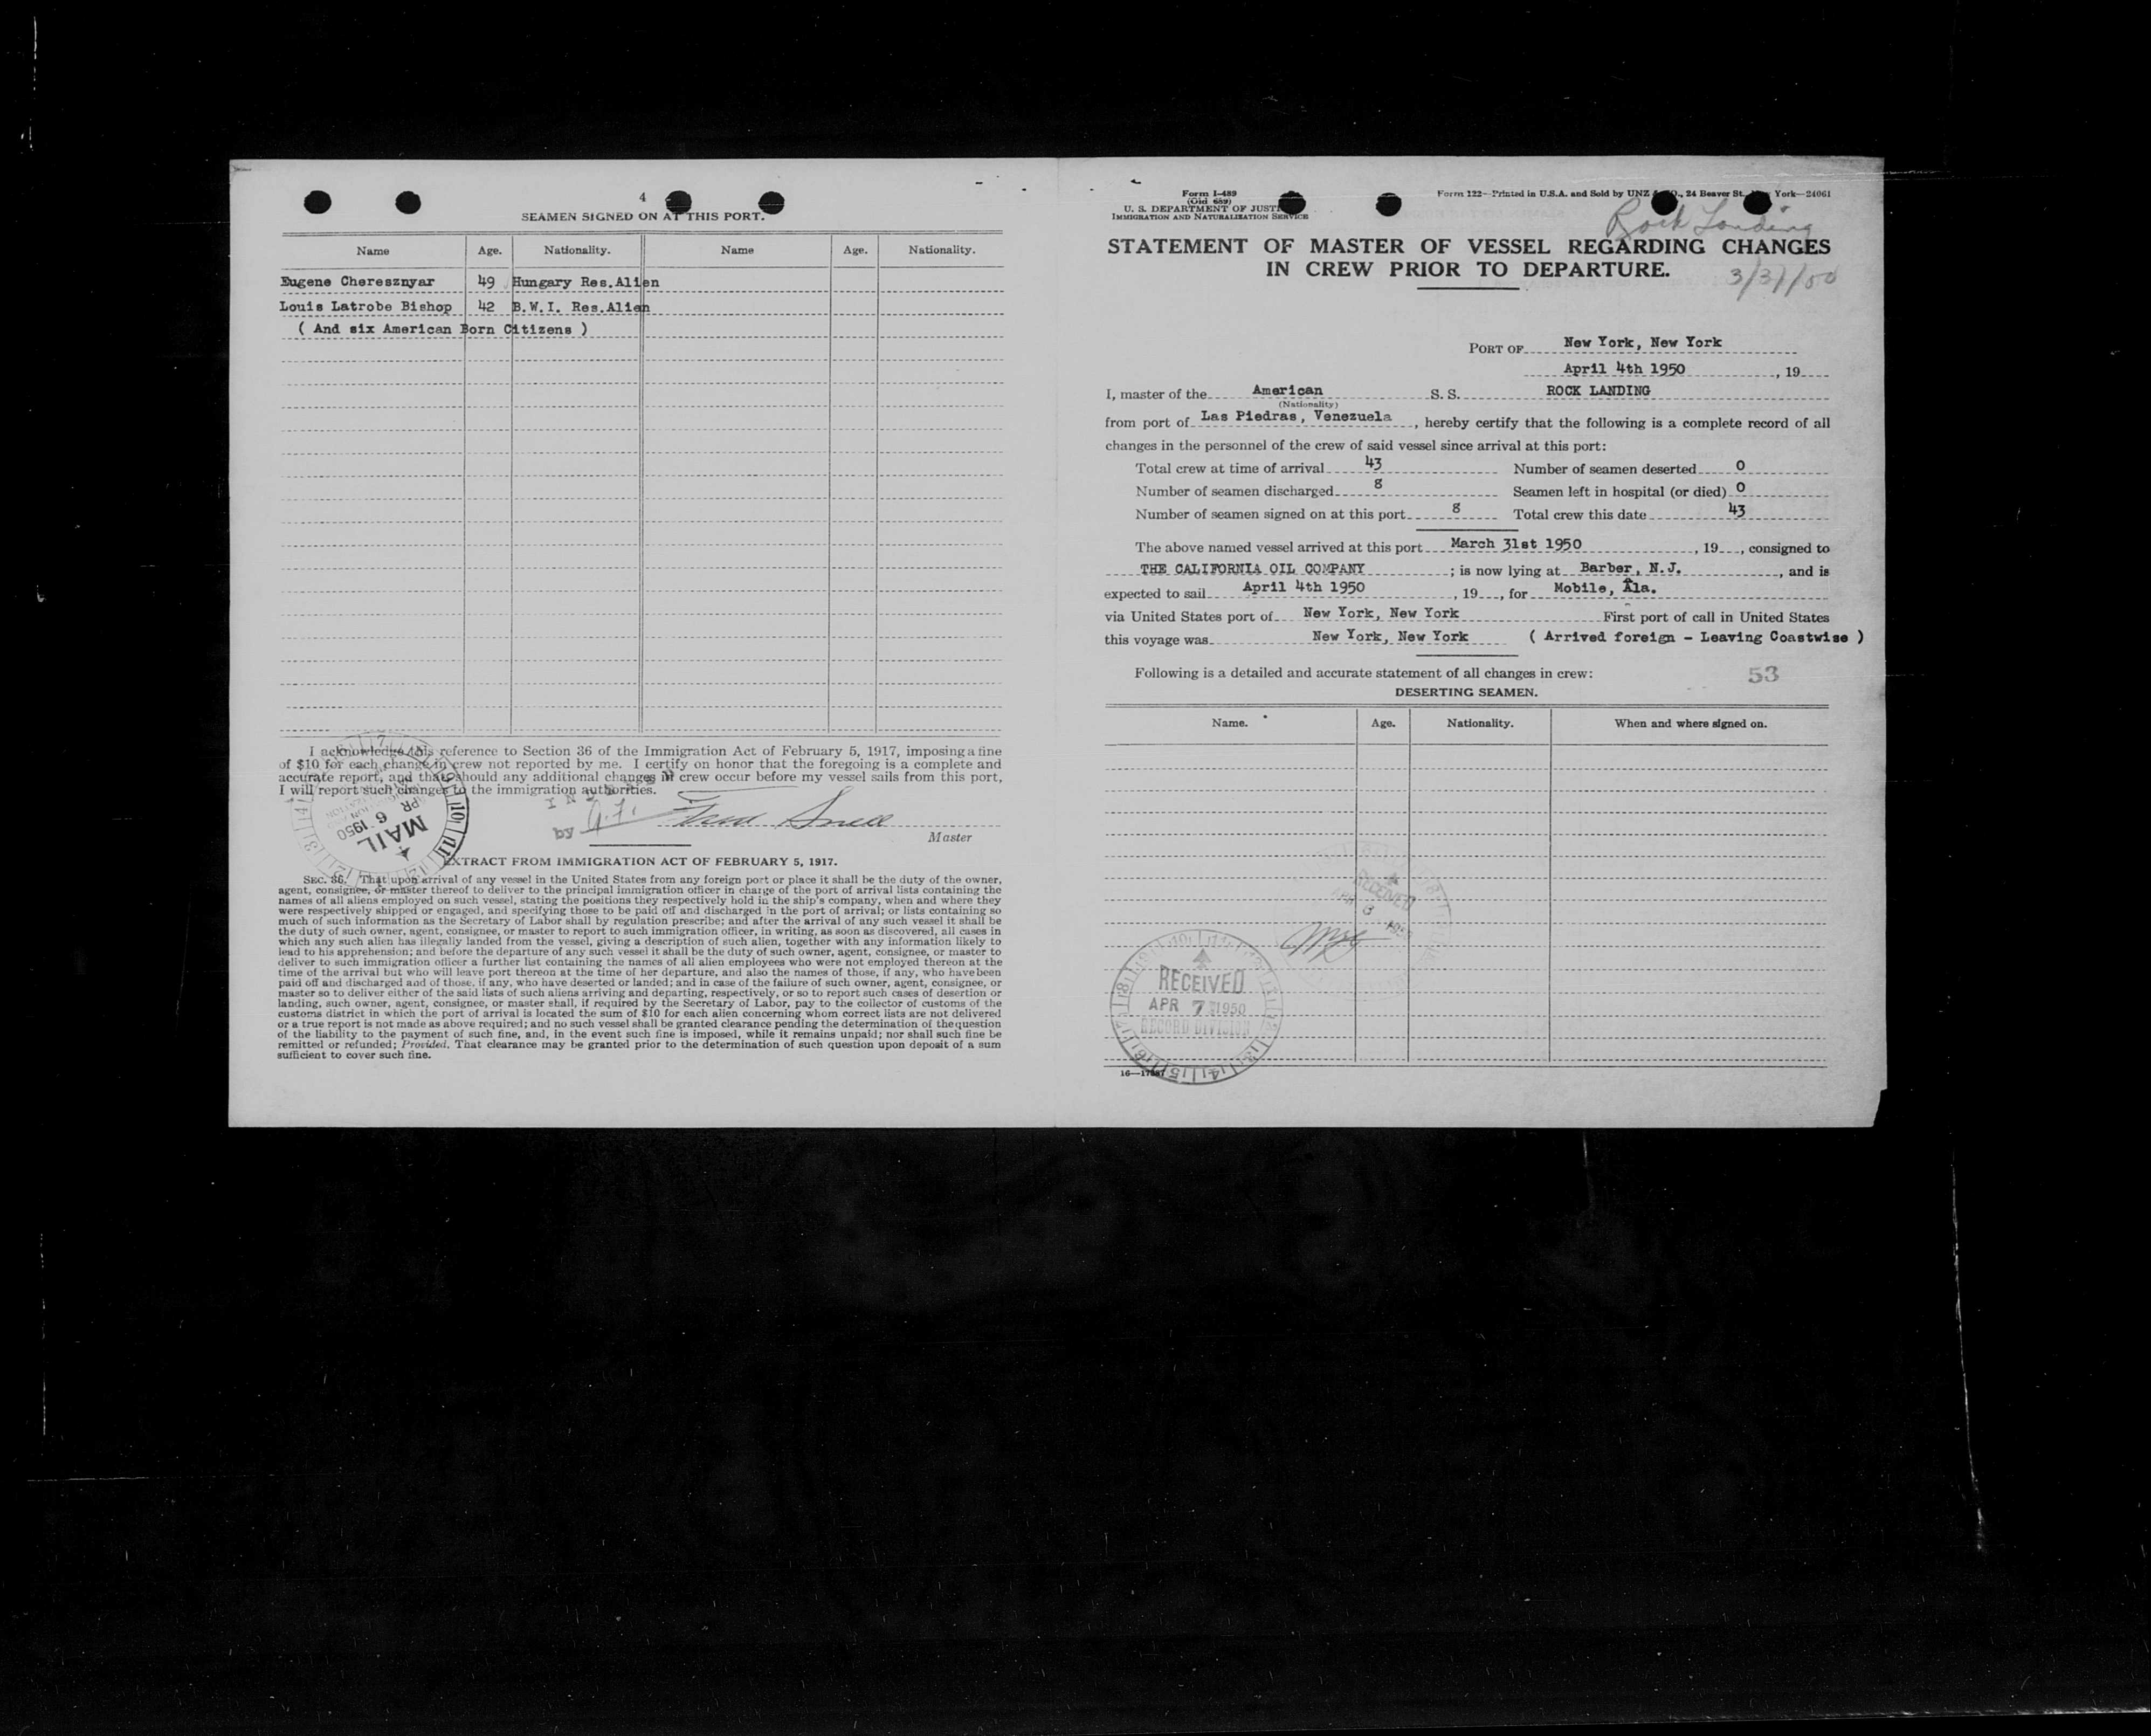 4
SEAMEN SIGNED ON AT THIS PORT.
Name Age. Nationality. Name Age. Nationality.
Eugene Cheresznyar 49 Hungary Res.Alien
Louis Latrobe Bishop 42 B.W.I. Res.Alien
( And six American Born Citizens )
I acknowledge this reference to Section 36 of the Immigration Act of February 5, 1917, imposing a fine
of $10 for each change in crew not reported by me. I certify on honor that the foregoing is a complete and
accurate report, and that should any additional changes in crew occur before my vessel sails from this port,
I will report such changes to the immigration authorities.
by
Master
MAIL
APR 6 1950
EXTRACT FROM IMMIGRATION ACT OF FEBRUARY 5, 1917.
SEC. 36. That upon arrival of any vessel in the United States from any foreign port or place it shall be the duty of the owner,
agent, consignee, or master thereof to deliver to the principal immigration officer in charge of the port of arrival lists containing the
names of all aliens employed on such vessel, stating the positions they respectively hold in the ship's company, when and where they
were respectively shipped or engaged, and specifying those to be paid off and discharged in the port of arrival; or lists containing so
much of such information as the Secretary of Labor shall by regulation prescribe; and after the arrival of any such vessel it shall be
the duty of such owner, agent, consignee, or master to report to such immigration officer, in writing, as soon as discovered, all cases in
which any such alien has illegally landed from the vessel, giving a description of such alien, together with any information likely to
lead to his apprehension; and before the departure of any such vessel it shall be the duty of such owner, agent, consignee, or master to
deliver to such immigration officer a further list containing the names of all alien employees who were not employed thereon at the
time of the arrival but who will leave port thereon at the time of her departure, and also the names of those, if any, who have been
paid off and discharged and of those, if any, who have deserted or landed; and in case of the failure of such owner, agent, consignee, or
master so to deliver either of the said lists of such aliens arriving and departing, respectively, or so to report such cases of desertion or
landing, such owner, agent, consignee, or master shall, if required by the Secretary of Labor, pay to the collector of customs of the
customs district in which the port of arrival is located the sum of $10 for each alien concerning whom correct lists are not delivered
or a true report is not made as above required; and no such vessel shall be granted clearance pending the determination of the question
of the liability to the payment of such fine, and, in the event such fine is imposed, while it remains unpaid; nor shall such fine be
remitted or refunded; Provided, That clearance may be granted prior to the determination of such question upon deposit of a sum
sufficient to cover such fine.
Form I-489
(Old 689)
U. S. DEPARTMENT OF JUSTI
IMMIGRATION AND NATURALIZATION SERVICE
Form 122—Printed in U.S.A. and Sold by UNZ O., 24 Beaver St., York—24061
Rock Landing
STATEMENT OF MASTER OF VESSEL REGARDING CHANGES
IN CREW PRIOR TO DEPARTURE.
3/31/50
PORT OF New York, New York
April 4th 1950, 19
I, master of the American S. S. ROCK LANDING
(Nationality)
from port of Las Piedras, Venezuela, hereby certify that the following is a complete record of all
changes in the personnel of the crew of said vessel since arrival at this port:
Total crew at time of arrival 43 Number of seamen deserted 0
Number of seamen discharged 8 Seamen left in hospital (or died) 0
Number of seamen signed on at this port 8 Total crew this date 43
The above named vessel arrived at this port March 31st 1950, 19, consigned to
THE CALIFORNIA OIL COMPANY; is now lying at Barber, N.J., and is
expected to sail April 4th 1950, 19, for Mobile, Ala.
via United States port of New York, New York First port of call in United States
this voyage was New York, New York ( Arrived foreign - Leaving Coastwise )
Following is a detailed and accurate statement of all changes in crew:
53
DESERTING SEAMEN.
Name. Age. Nationality. When and where signed on.
RECEIVED
RECEIVED
APR 7 1950
RECORD DIVISION